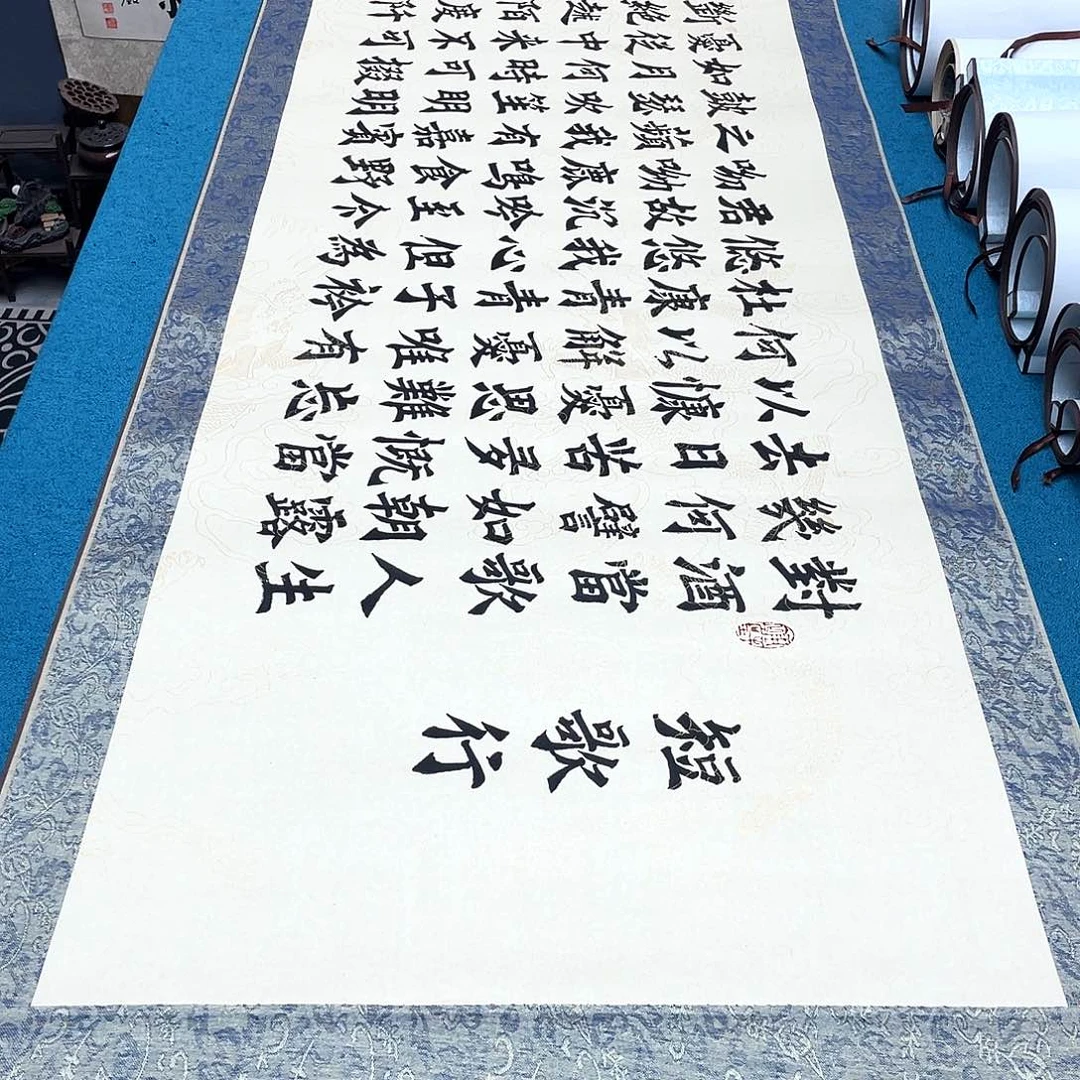 短歌行
對酒當歌人生
幾何譬如朝露
去日苦多慨當
以慷憂思難忘
何以解憂唯有
杜康青青子衿
悠悠我心但為
君故沉吟至今
呦呦鹿鳴食野
之蘋我有嘉賓
鼓瑟吹笙明明
如月何時可掇
憂從中来不可
斷絕越陌度阡